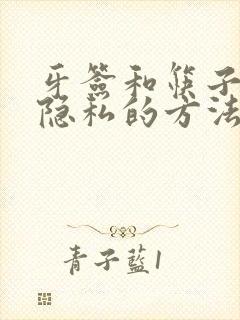 牙签和筷子
隐私的方法
青子蓝1